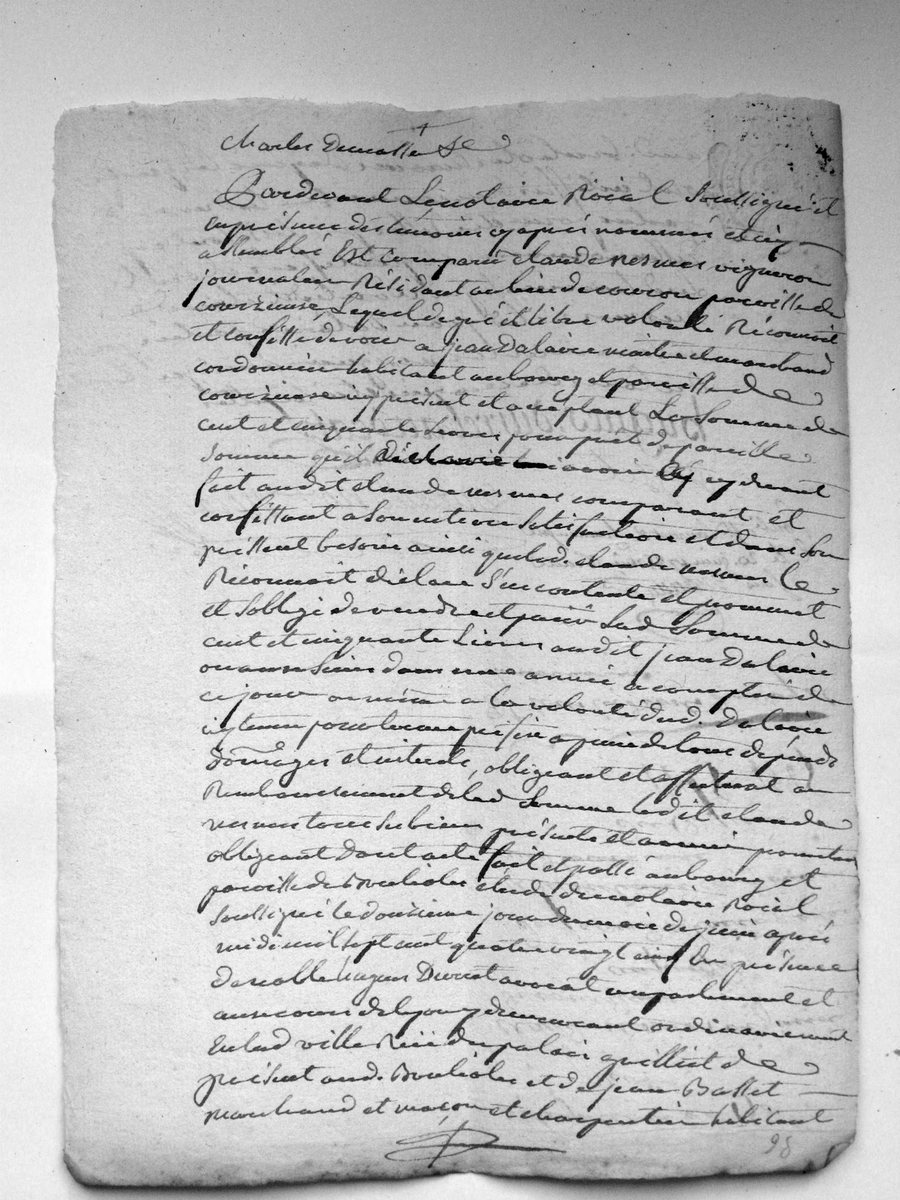 Charles Demasse
Pardevant Le notaire Roial Soussigné et
en présence des temoins cy apres nommés et icy
assemblés Est comparu claude vermes vigneron
journalier Résidant au lieu de couron parroisse de
courzieux, Lequel de gré et libre volonté Réconnoit
et confesse devoir a jean Dalaire maitre et marchand
cordonnier habitant au bourg et parroisse de
courzieux icy présent et acceptant La Somme de
cent et cinquante Livres pour prêt de pareille
Somme qu'il avoir cy devant
fait audit claude vermes comparant et
confessant a Son entiere Satisfaction et dans Son
pressent besoin ainsi que led. claude vermes le
Réconnoit declare S'en contente et promet
et S'oblige de rendre et paier Lad. Somme de
cent et cinquante Livres audit jean Dalaire
ou aux Siens dans une année a compter de
ce jour ou même a la volonté dud. Dalaire
a peine de tous depends
dommages et interets, obligeant et affectant au
Remboursement de lad. Somme ledit claude
vermes tous Ses biens présents et avenir pourtant
obligeant Dont acte fait et passé au bourg et
parroisse de étude du notaire Roial
Soussigné le douzieme jour du mois de juin après
midi mil sept cent quatre vingt cinq En présence
de noble avocat en parlement et
aux cours de Lyon y demeurant ordinairement
En lad. ville Rüe du palais de
présent aud. et de jean Basset
marchand et maçon et charpentier habitant
98